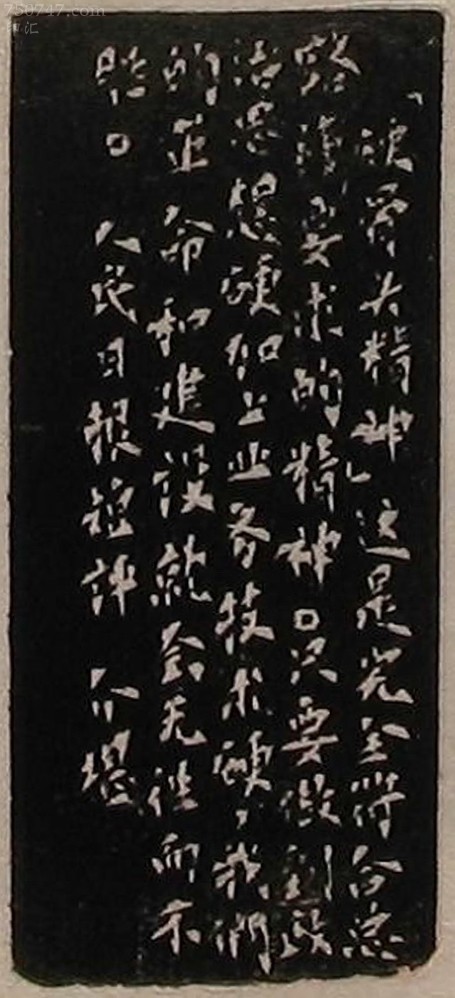 「硬骨头精神」这是完全符合总
路线要求的精神。只要做到政
治思想硬加上业务技术硬,我們
的革命和建設就会无往而不
胜。 人民日报短评 介堪